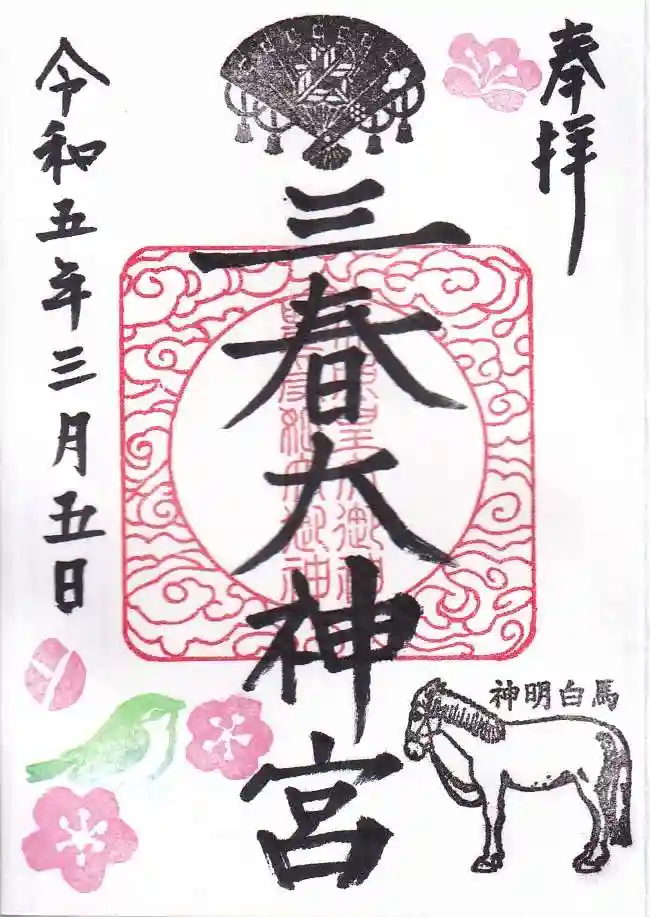 奉拝
三春大神宮
令和五年三月五日
神明白馬